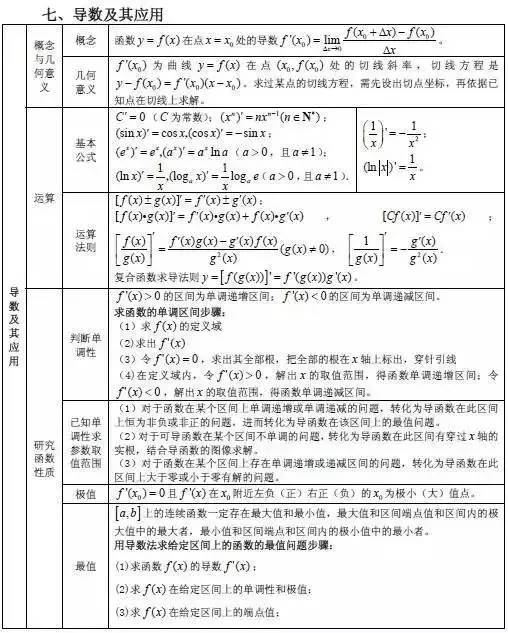 七、导数及其应用
导数及其应用
概念与几何意义
概念
函数 y=f(x) 在点 x=x₀ 处的导数 f'(x₀)=lim_{Δx→0} (f(x₀+Δx)−f(x₀))/Δx 。
几何意义
f'(x₀) 为曲线 y=f(x) 在点 (x₀,f(x₀)) 处的切线斜率，切线方程是
y−f(x₀)=f'(x₀)(x−x₀)。求过某点的切线方程，需先设出切点坐标，再依据已
知点在切线上求解。
运算
基本公式
C'=0（C 为常数）；(xⁿ)'=nxⁿ⁻¹(n∈N*)；
(sin x)'=cos x,(cos x)'=−sin x；
(eˣ)'=eˣ,(aˣ)'=aˣ ln a（a>0，且 a≠1）；
(ln x)'=1/x,(logₐx)'=1/x logₐe（a>0，且 a≠1）.
(1/x)'=−1/x²；
(ln|x|)'=1/x 。
运算法则
[f(x)±g(x)]'=f'(x)±g'(x)；
[f(x)•g(x)]'=f'(x)•g(x)+f(x)•g'(x) ， [Cf(x)]'=Cf'(x) ；
[f(x)/g(x)]'=(f'(x)g(x)−g'(x)f(x))/g²(x) (g(x)≠0)，[1/g(x)]'=−g'(x)/g²(x).
复合函数求导法则 y=[f(g(x))]'=f'(g(x))g'(x)。
研究函数性质
判断单调性
f'(x)>0 的区间为单调递增区间；f'(x)<0 的区间为单调递减区间。
求函数的单调区间步骤：
（1）求 f(x) 的定义域
(2)求出 f'(x)
（3）令 f'(x)=0，求出其全部根，把全部的根在 x 轴上标出，穿针引线
(4)在定义域内，令 f'(x)>0，解出 x 的取值范围，得函数单调递增区间；令
f'(x)<0，解出 x 的取值范围，得函数单调递减区间。
已知单调性求参数取值范围
（1）对于函数在某个区间上单调递增或单调递减的问题，转化为导函数在此区间
上恒为非负或非正的问题，进而转化为导函数在该区间上的最值问题。
（2）对于可导函数在某个区间不单调的问题，转化为导函数在此区间有穿过 x 轴的
实根，结合导函数的图像求解。
（3）对于函数在某个区间上存在单调递增或递减区间的问题，转化为导函数在此
区间上大于零或小于零有解的问题。
极值
f'(x₀)=0 且 f'(x) 在 x₀ 附近左负（正）右正（负）的 x₀ 为极小（大）值点。
最值
[a,b] 上的连续函数一定存在最大值和最小值，最大值和区间端点值和区间内的极
大值中的最大者，最小值和区间端点和区间内的极小值中的最小者。
用导数法求给定区间上的函数的最值问题步骤：
(1)求函数 f(x) 的导数 f'(x)；
(2)求 f(x) 在给定区间上的单调性和极值；
(3)求 f(x) 在给定区间上的端点值；